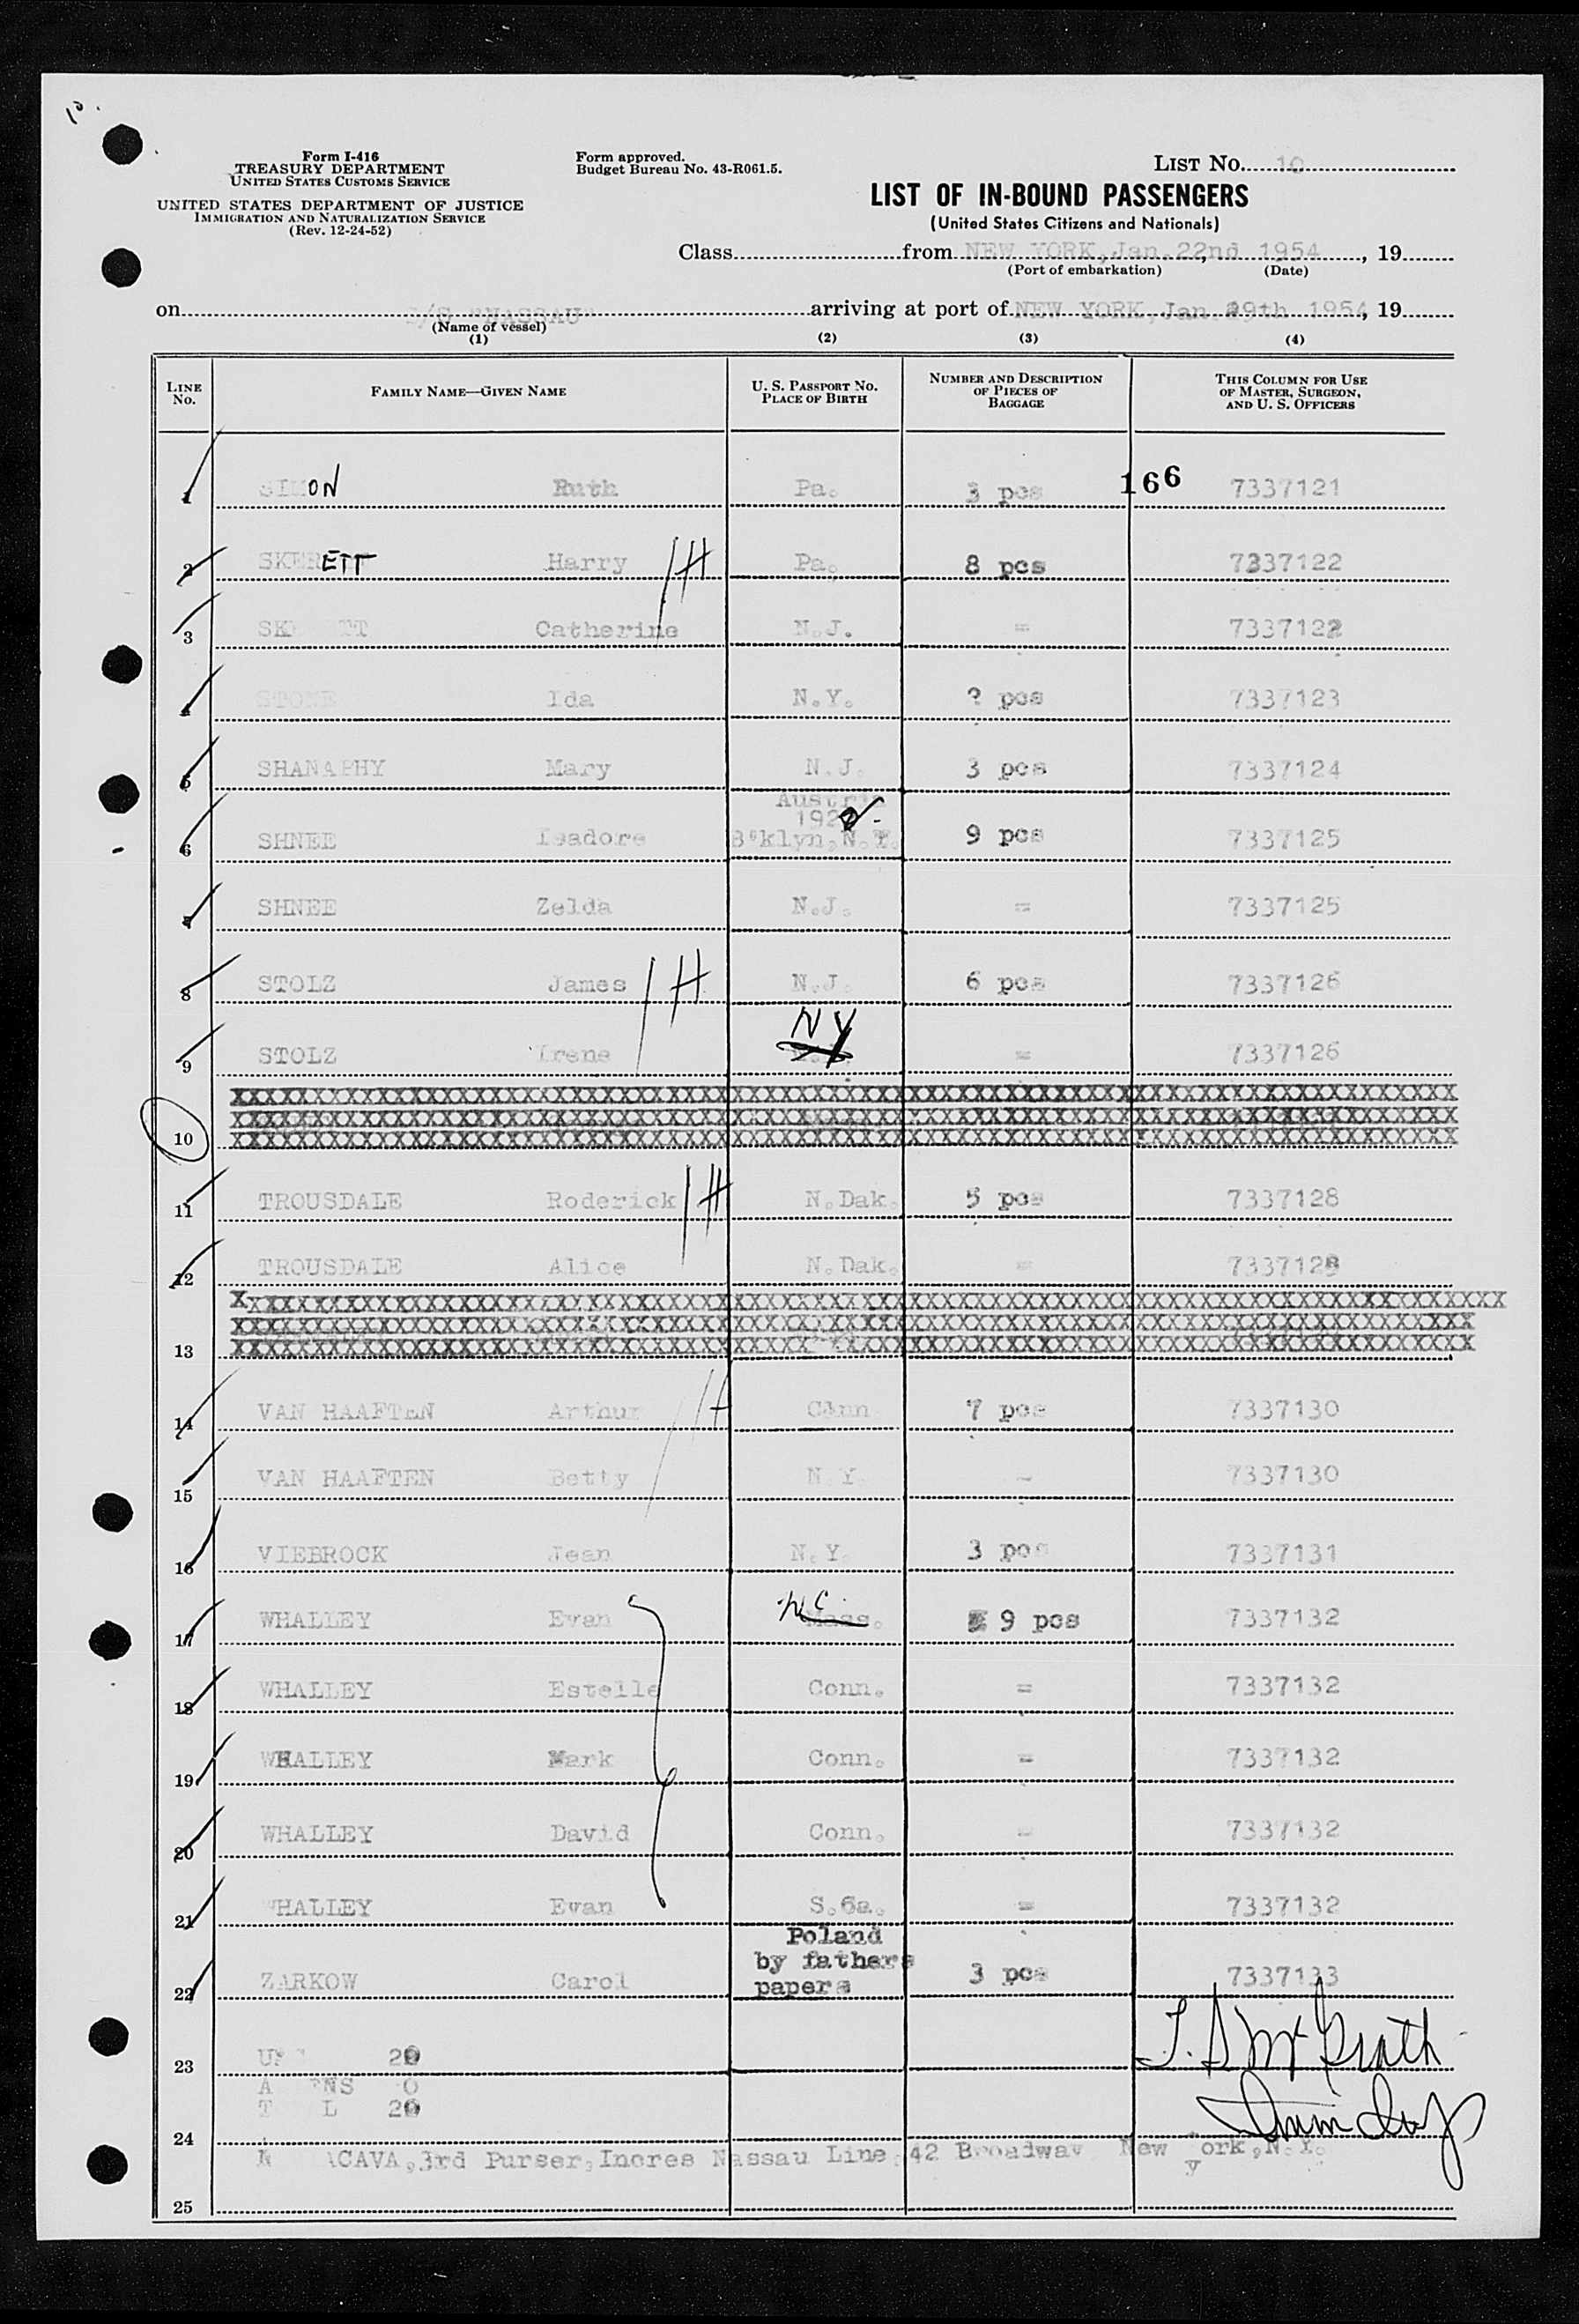 10.
Form I-416
TREASURY DEPARTMENT
UNITED STATES CUSTOMS SERVICE
UNITED STATES DEPARTMENT OF JUSTICE
IMMIGRATION AND NATURALIZATION SERVICE
(Rev. 12-24-52)
Form approved.
Budget Bureau No. 43-R061.5.
LIST NO. 10
LIST OF IN-BOUND PASSENGERS
(United States Citizens and Nationals)
Class from NEW YORK, Jan. 22nd 1954, 19
(Port of embarkation) (Date)
on /S "NASSAU" arriving at port of NEW YORK, Jan 29th 1954, 19
(Name of vessel)
(1) (2) (3) (4)
LINE NO. FAMILY NAME—GIVEN NAME U. S. PASSPORT NO. PLACE OF BIRTH NUMBER AND DESCRIPTION OF PIECES OF BAGGAGE THIS COLUMN FOR USE OF MASTER, SURGEON, AND U. S. OFFICERS
1 SIMON Ruth Pa. 3 pcs 166 7337121
2 SKERETT Harry 1H Pa. 8 pcs 7337122
3 SK TT Catherine N.J. = 7337122
4 STONE Ida N.Y. ? pcs 7337123
5 SHANAPHY Mary N.J. 3 pcs 7337124
Austria
192
6 SHNEE Isadore B'klyn, N.Y. 9 pcs 7337125
7 SHNEE Zelda N.J. = 7337125
8 STOLZ James 1H N.J. 6 pcs 7337126
9 STOLZ Irene NY = 7337126
10
11 TROUSDALE Roderick 1H N.Dak. 5 pcs 7337128
12 TROUSDALE Alice N.Dak. = 7337128
13
14 VAN HAAFTEN Arthur 1H Conn 7 pcs 7337130
15 VAN HAAFTEN Betty N.Y. - 7337130
16 VIEBROCK Jean N.Y. 3 pcs 7337131
17 WHALLEY Evan NC Mass. 9 pcs 7337132
18 WHALLEY Estelle Conn. = 7337132
19 WHALLEY Mark Conn. = 7337132
20 WHALLEY David Conn. = 7337132
21 WHALLEY Evan S.Ca. = 7337132
Poland
by fathers
22 ZARKOW Carol papers 3 pcs 7337133
23 20
A ENS 0
T L 20
24
N ACAVA, 3rd Purser, Incres Nassau Line, 42 Broadway New York, N.Y.
25